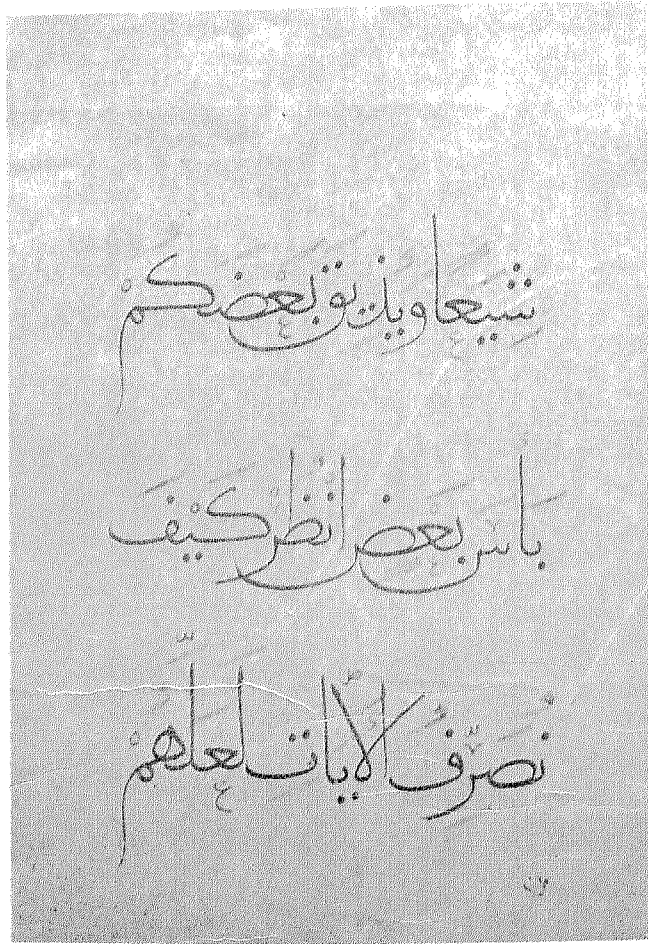 شِيَعًا وَيُذِيقَ بَعْضَكُمْ
بَأْسَ بَعْضٍ انْظُرْ كَيْفَ
نُصَرِّفُ الْاٰيَاتِ لَعَلَّهُمْ